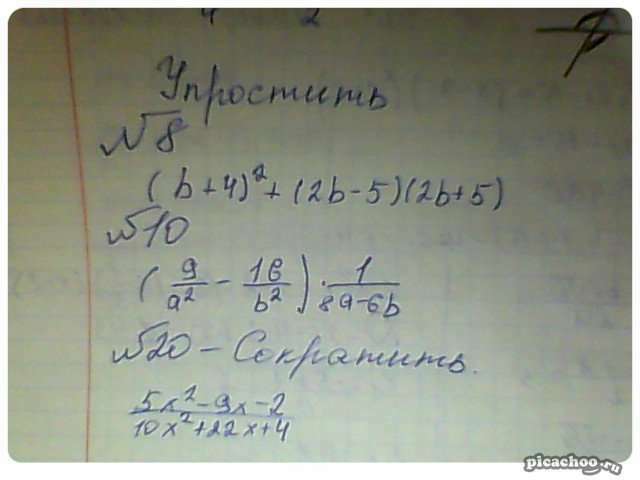 4 2
Упростить
№8
(b+4)²+(2b-5)(2b+5)
№10
(9/a² - 16/b²)·1/8a-6b
№20 - Сократить.
5x²-9x-2/10x²+22x+4
picachoo.ru